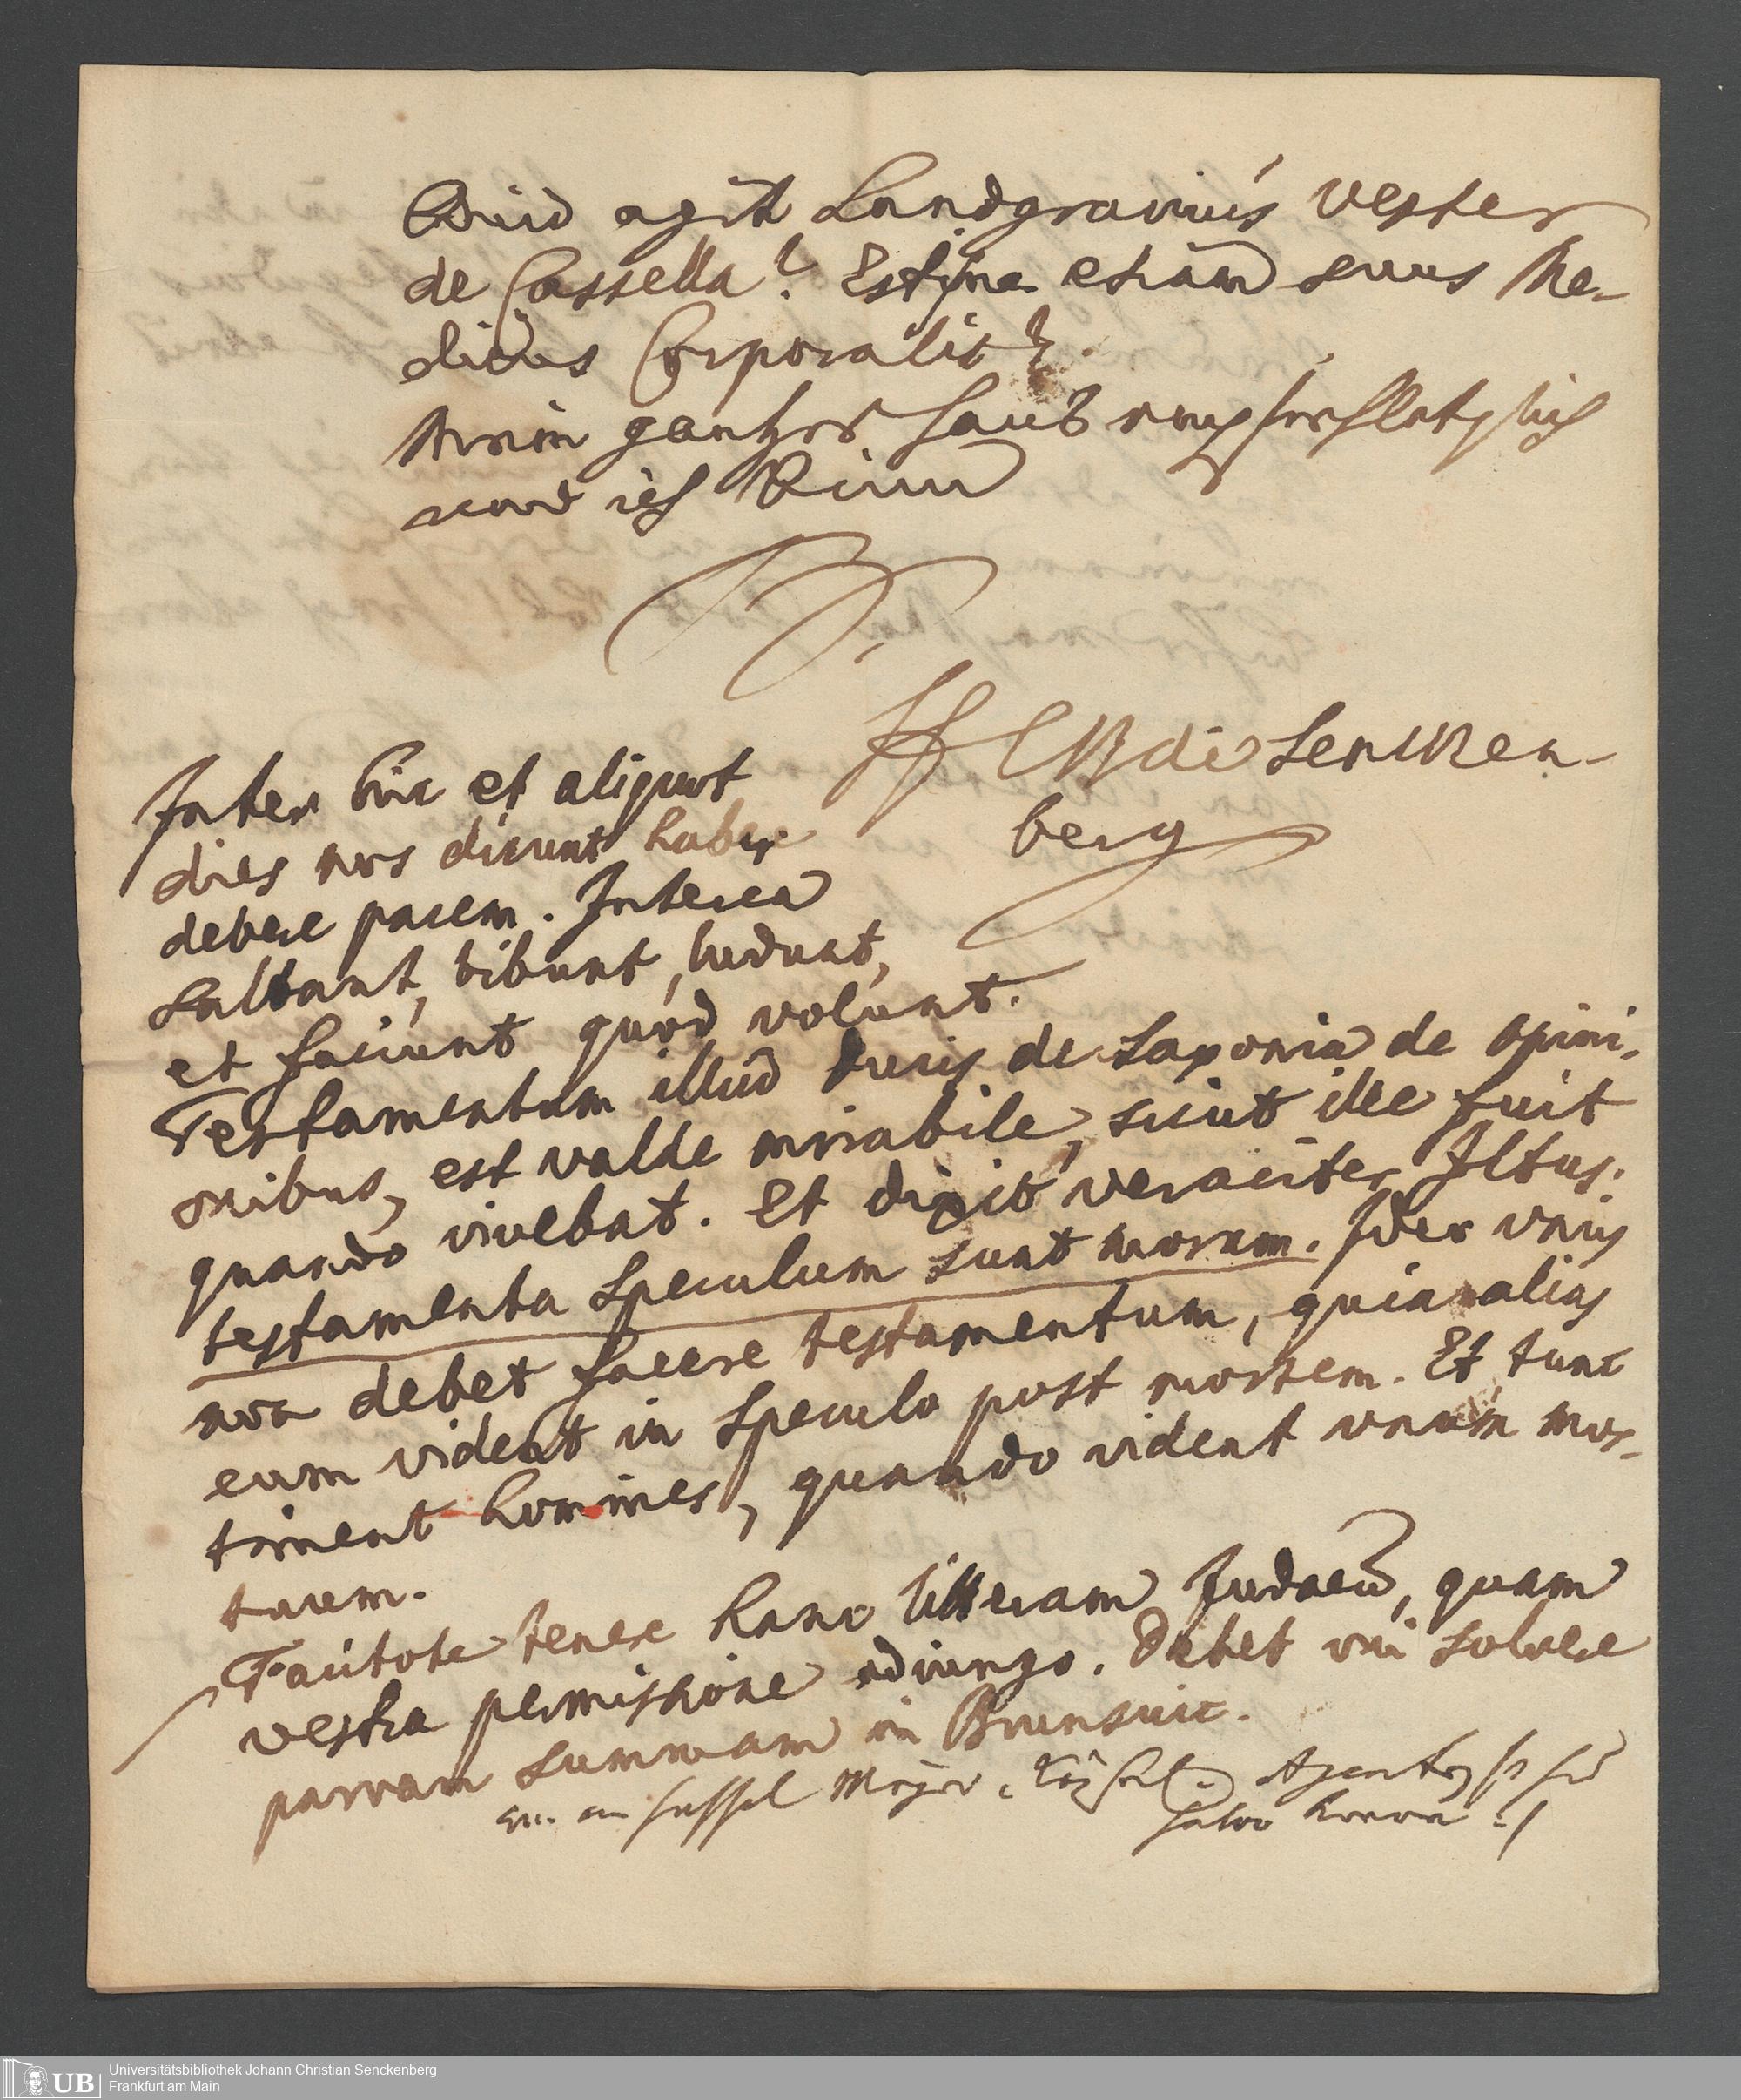 Quid agit Landgravius vester
de Cassella? Estne etiam suus Me-
dicus Corporalis?
Mein gantzes Haus empfiehlet sich
und ich bin
HCBdeSencken-
berg
Inter hic et aliquot
dies nos dicunt habere
debere pacem. Interea
saltant, bibunt, ludunt,
et faciunt quod volunt.
Testamentum illud Ducis de Saxonia de opini-
onibus, est valde mirabile, sicut ille fuit
quando vivebat. Et dixit veraciter Iltus:
testamenta speculum sunt morum. Ideo unus
non debet facere testamentum, quia alias
eum vident in speculo post mortem. Et tunc
timent homines, quando vident unum mor-
tuum.
Facitote tenere hanc litteram Judaeo, quam
vestra permissione adiungo. Debet mi solvere
parvam summam in Brunsuic.
an Hessel Meyer
salvo honore
Universitätsbibliothek Johann Christian Senckenberg
Frankfurt am Main
UB